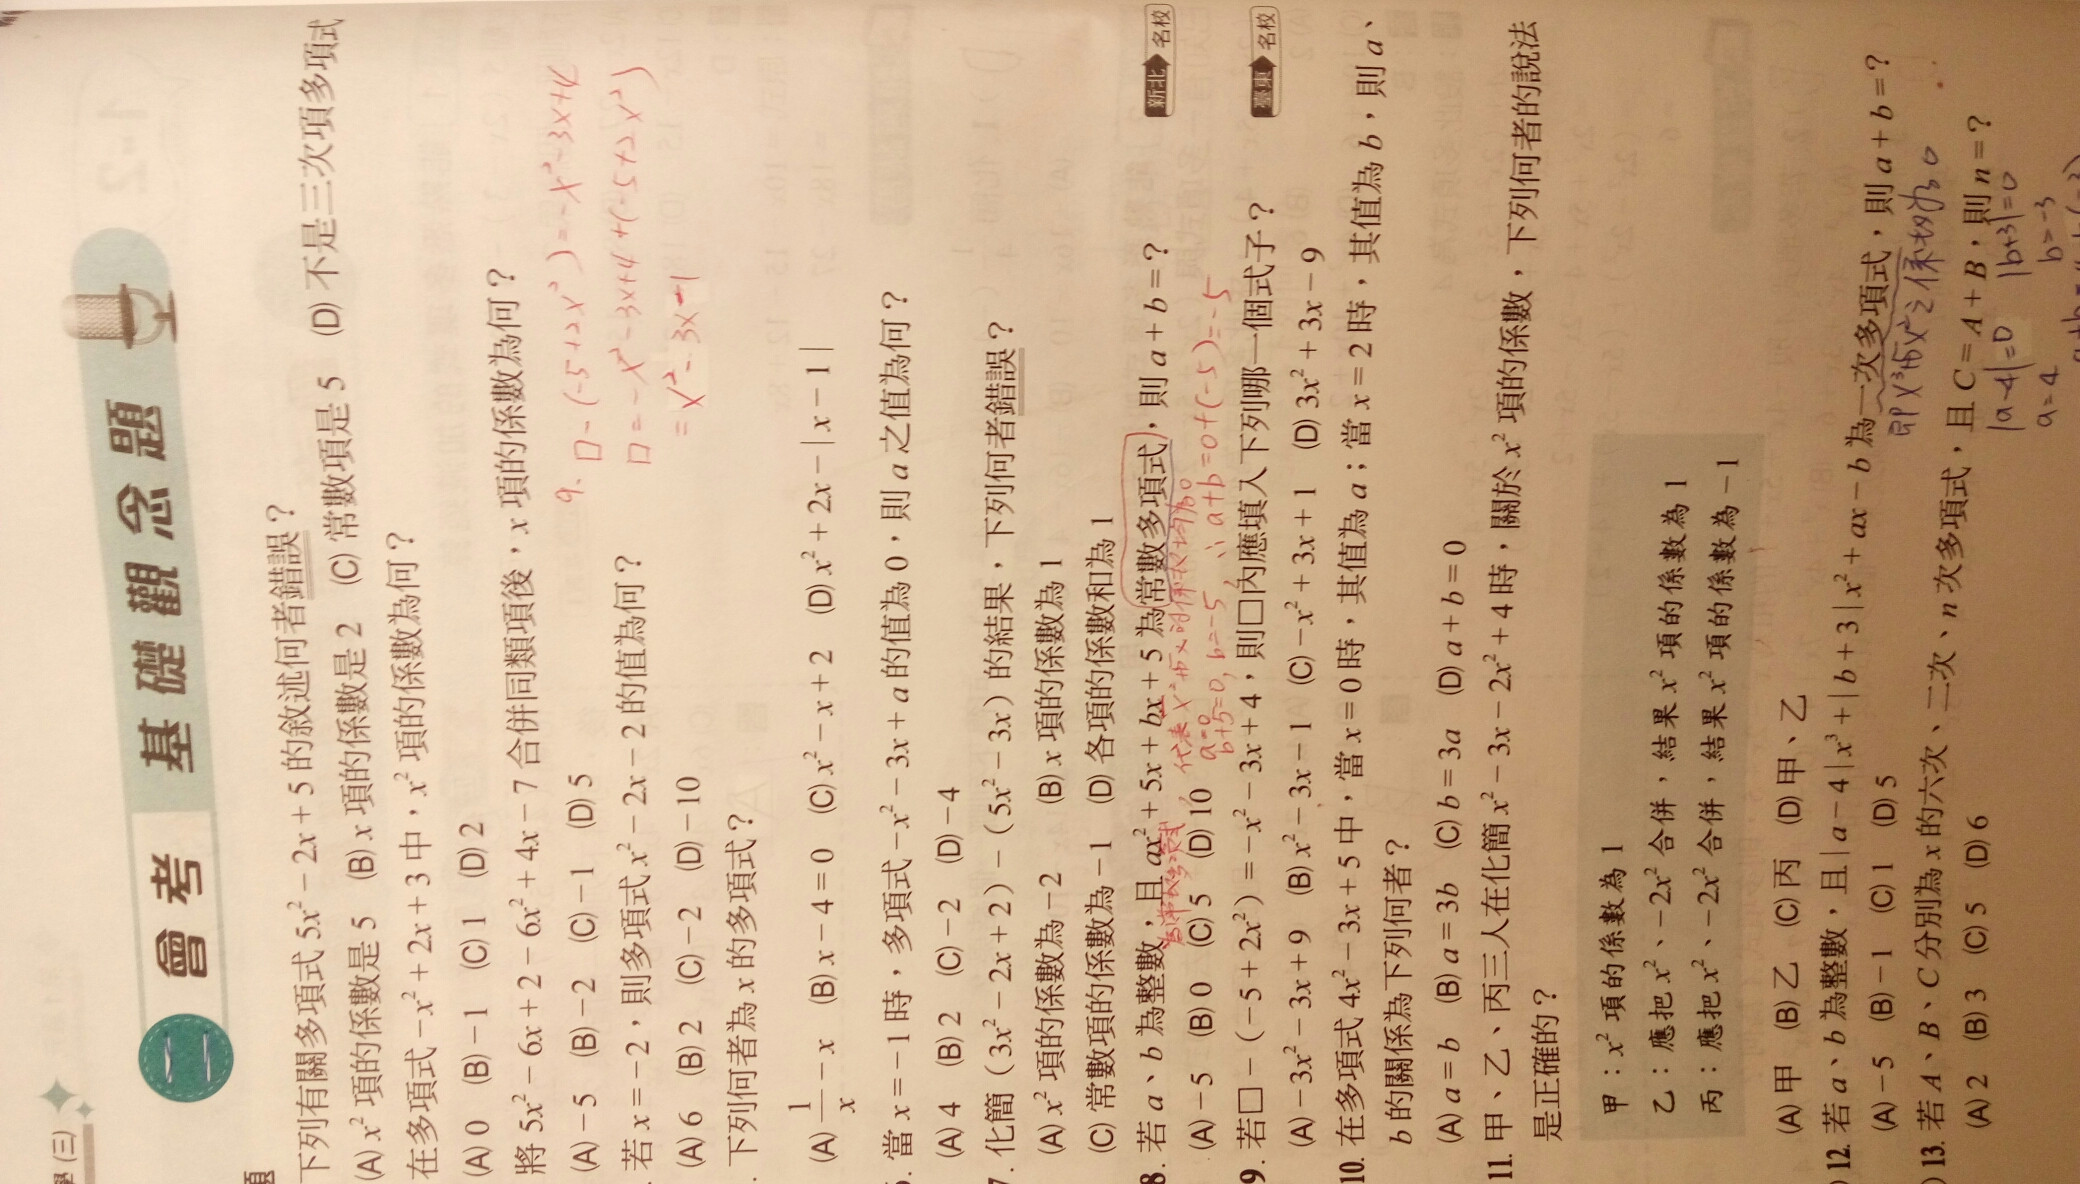 學(三)
二 會考 基礎觀念題
題
下列有關多項式 5x² − 2x + 5 的敘述何者錯誤？
(A) x² 項的係數是 5 (B) x 項的係數是 2 (C) 常數項是 5 (D) 不是三次項多項式
在多項式 −x² + 2x + 3 中，x² 項的係數為何？
(A) 0 (B) −1 (C) 1 (D) 2
將 5x² − 6x + 2 − 6x² + 4x − 7 合併同類項後，x 項的係數為何？
(A) −5 (B) −2 (C) −1 (D) 5
若 x = −2，則多項式 x² − 2x − 2 的值為何？
(A) 6 (B) 2 (C) −2 (D) −10
9. □ − (−5+2x²) = −x²−3x+4
□ = −x²−3x+4+(−5+2x²)
= x²−3x−1
下列何者為 x 的多項式？
(A) 1/x − x (B) x − 4 = 0 (C) x² − x + 2 (D) x² + 2x − | x − 1 |
當 x = −1 時，多項式 −x² − 3x + a 的值為 0，則 a 之值為何？
(A) 4 (B) 2 (C) −2 (D) −4
7. 化簡 (3x² − 2x + 2) − (5x² − 3x) 的結果，下列何者錯誤？
(A) x² 項的係數為 −2 (B) x 項的係數為 1
(C) 常數項的係數為 −1 (D) 各項的係數和為 1
8. 若 a、b 為整數，且 ax² + 5x + bx + 5 為常數多項式，則 a + b = ？ 新北 名校
代表 x² 和 x 的係數均為0
(A) −5 (B) 0 (C) 5 (D) 10
a=0
b+5=0, b=−5, ∴ a+b=0+(−5)=−5
9. 若□ − (−5 + 2x²) = −x² − 3x + 4，則□內應填入下列哪一個式子？ 臺東 名校
(A) −3x² − 3x + 9 (B) x² − 3x − 1 (C) −x² + 3x + 1 (D) 3x² + 3x − 9
10. 在多項式 4x² − 3x + 5 中，當 x = 0 時，其值為 a；當 x = 2 時，其值為 b，則 a、
b 的關係為下列何者？
(A) a = b (B) a = 3b (C) b = 3a (D) a + b = 0
11. 甲、乙、丙三人在化簡 x² − 3x − 2x² + 4 時，關於 x² 項的係數，下列何者的說法
是正確的？
甲：x² 項的係數為 1
乙：應把 x²、−2x² 合併，結果 x² 項的係數為 1
丙：應把 x²、−2x² 合併，結果 x² 項的係數為 −1
(A) 甲 (B) 乙 (C) 丙 (D) 甲、乙
12. 若 a、b 為整數，且 | a − 4 | x³ + | b + 3 | x² + ax − b 為一次多項式，則 a + b = ？
即 x³ 和 x² 之係數均為0
(A) −5 (B) −1 (C) 1 (D) 5
13. 若 A、B、C 分別為 x 的六次、二次、n 次多項式，且 C = A + B，則 n = ？
|a−4|=0 |b+3|=0
(A) 2 (B) 3 (C) 5 (D) 6
a=4 b=−3